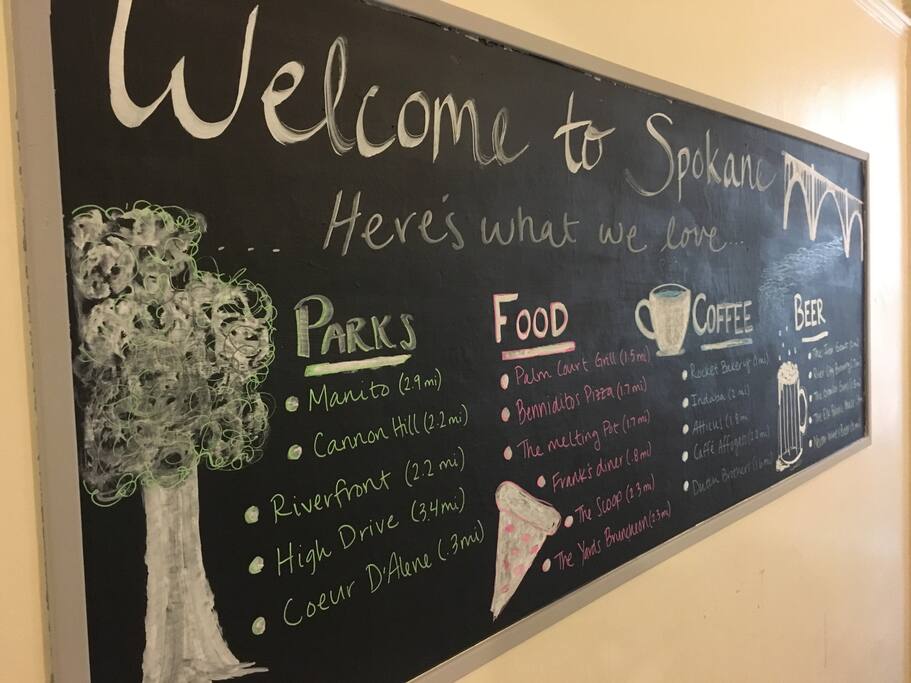 Welcome to Spokane
.... Here's what we love...
PARKS
Manito (2.9 mi)
Cannon Hill (2.2 mi)
Riverfront (2.2 mi)
High Drive (3.4 mi)
Coeur D'Alene (.3 mi)
FOOD
Palm Court Grill (1.5 mi)
Benniditos Pizza (1.7 mi)
The melting Pot (1.7 mi)
Frank's diner (.8 mi)
The Scoop (2.3 mi)
The Yards Bruncheon (2.3 mi)
COFFEE
Rocket Bakery (1 mi)
Indaba (2 mi)
Atticus (1.8 mi)
Caffé Affogato
Dutch Brothers
BEER
The
River City Brewing
The
The